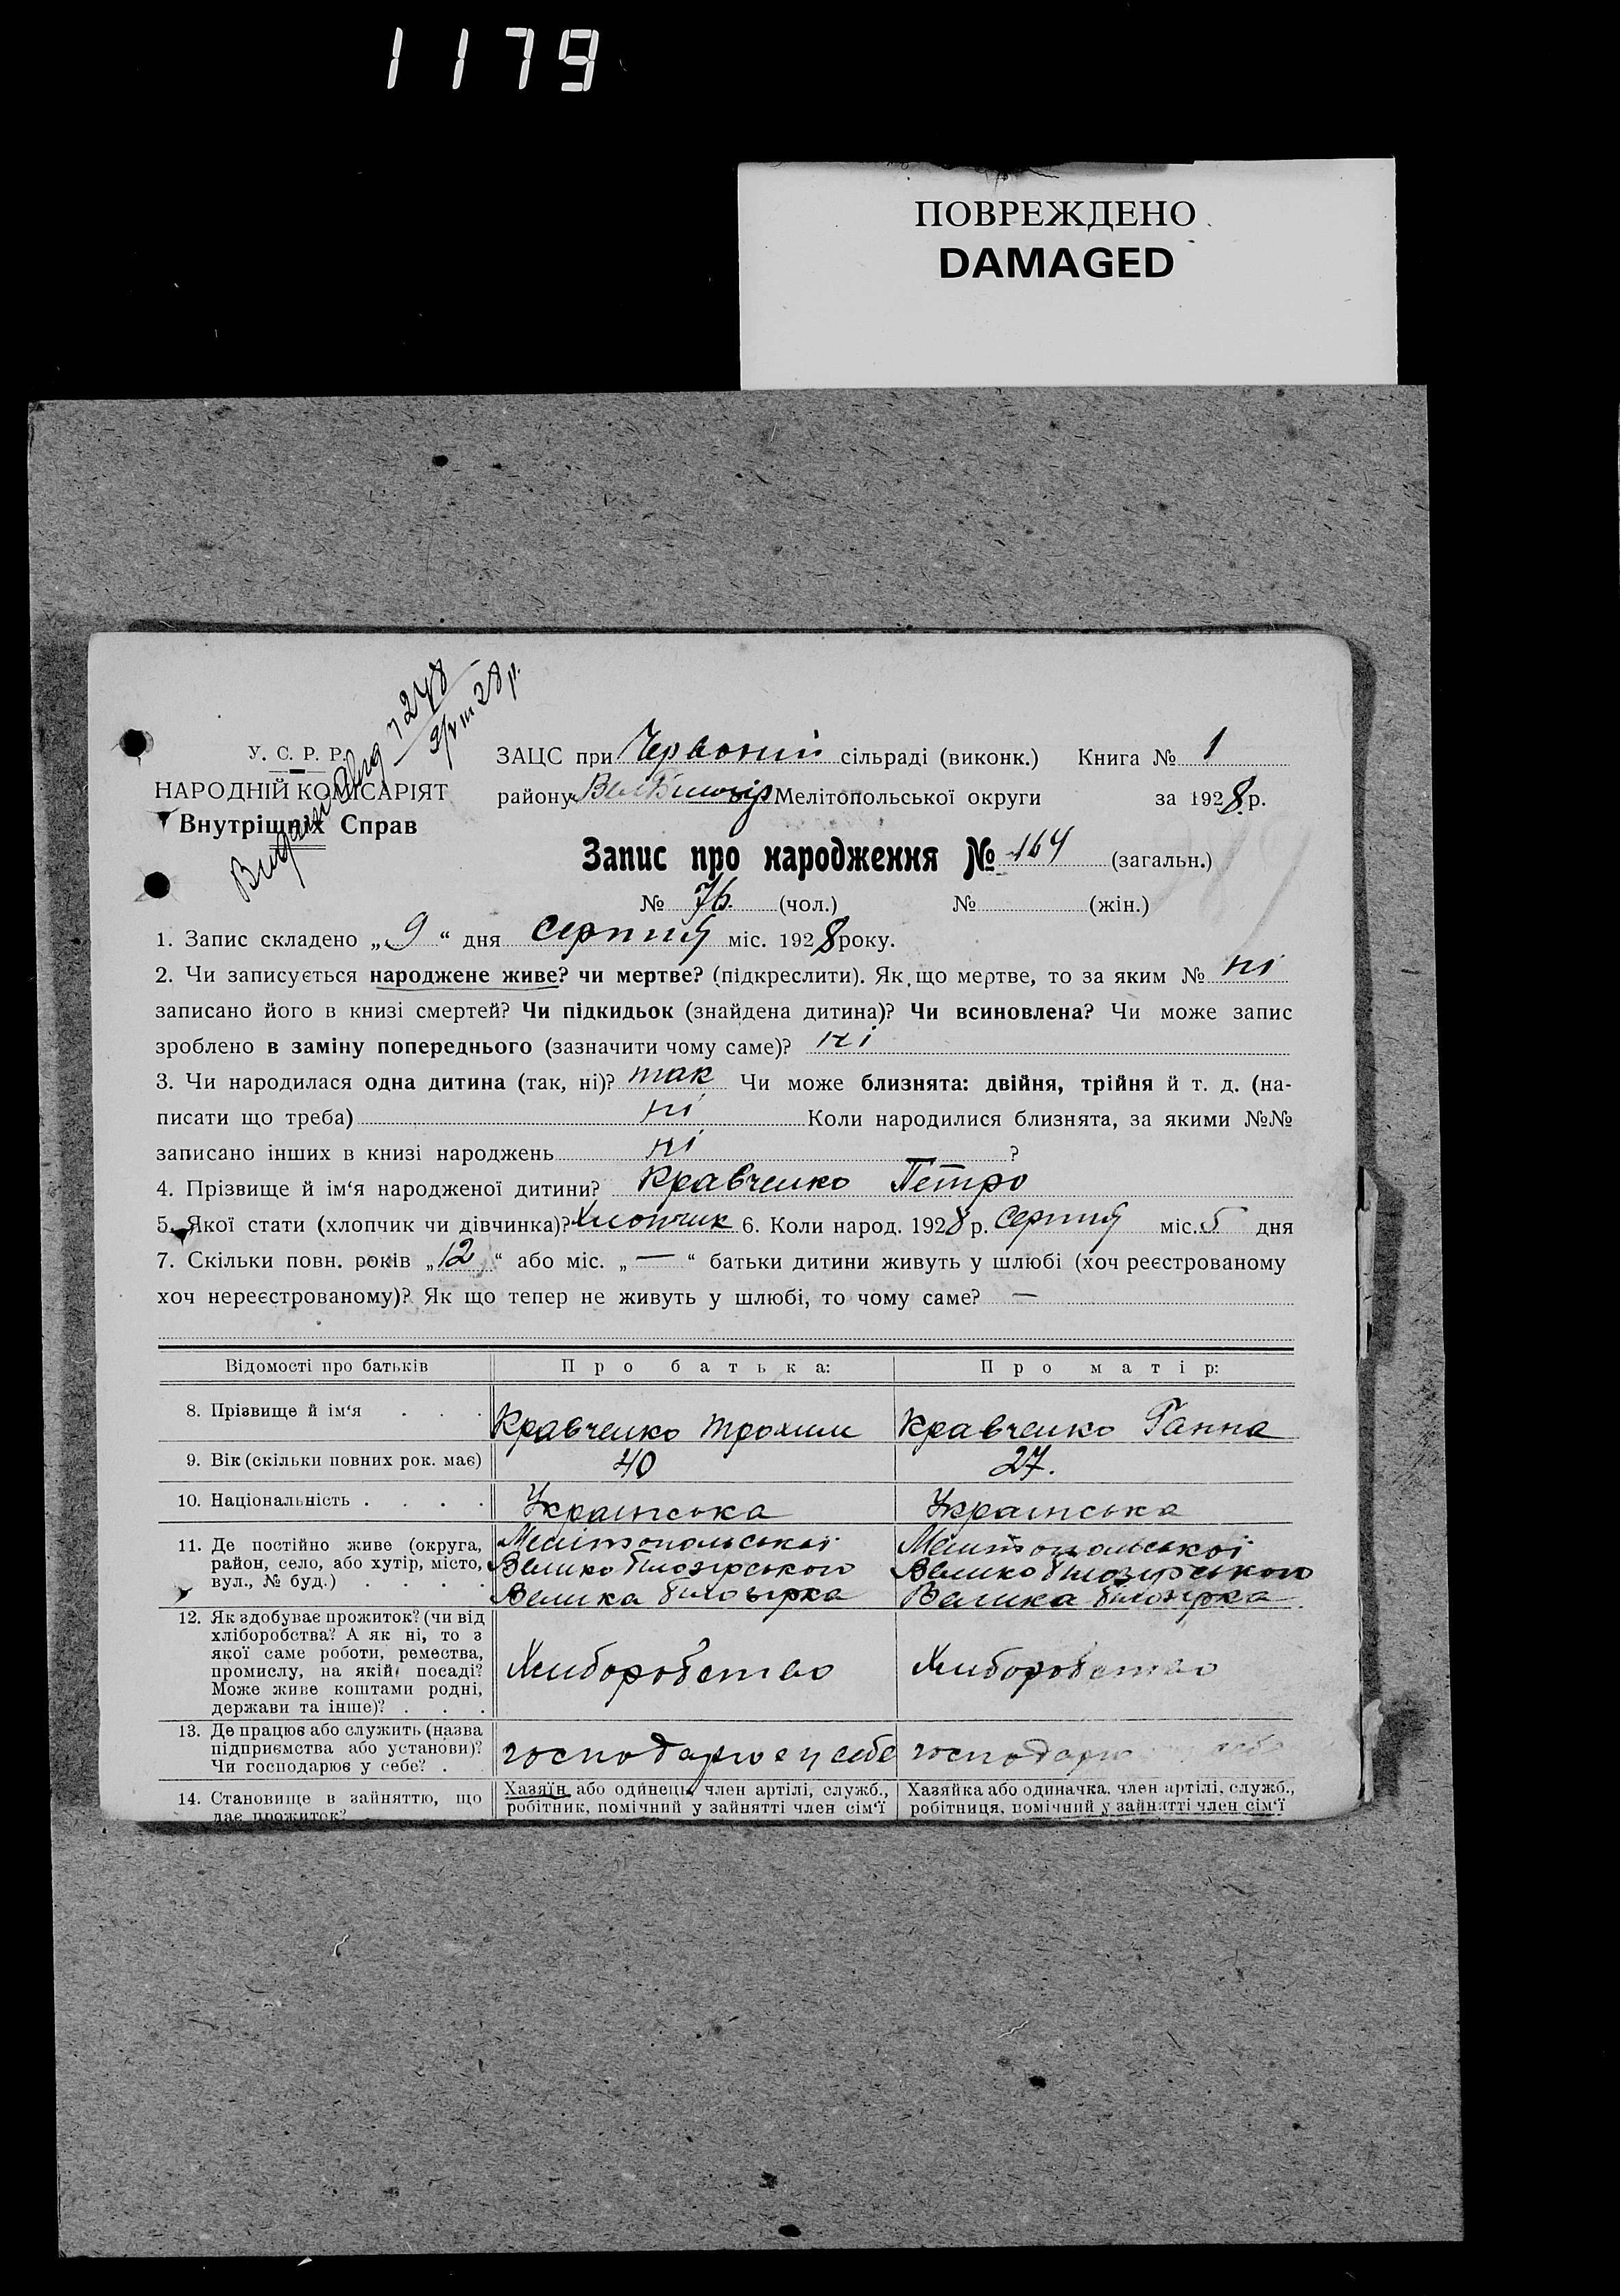 1179
ПОВРЕЖДЕНО
DAMAGED
Видани 248
9/VIII 28 р.
У. С. Р. Р.
НАРОДНІЙ КОМІСАРІЯТ
Внутрішніх Справ
ЗАЦС при Червоній сільраді (виконк.) Книга № 1
району Вел Білозір Мелітопольської округи за 1928 р.
Запис про народження № 164 (загальн.)
№ 76. (чол.) № (жін.)
1. Запис складено „9“ дня серпня міс. 1928 року.
2. Чи записується народжене живе? чи мертве? (підкреслити). Як що мертве, то за яким № ні
записано його в книзі смертей? Чи підкидьок (знайдена дитина)? Чи всиновлена? Чи може запис
зроблено в заміну попереднього (зазначити чому саме)? ні
3. Чи народилася одна дитина (так, ні)? так Чи може близнята: двійня, трійня й т. д. (на-
писати що треба) ні Коли народилися близнята, за якими №№
записано інших в книзі народжень ні ?
4. Прізвище й ім‘я народженої дитини? Кравченко Петро
5. Якої стати (хлопчик чи дівчинка)? Хлопчик 6. Коли народ. 1928 р. серпня міс. 5 дня
7. Скільки повн. років „12“ або міс. „—“ батьки дитини живуть у шлюбі (хоч реєстрованому
хоч нереєстрованому)? Як що тепер не живуть у шлюбі, то чому саме? —
Відомості про батьків Про батька: Про матір:
8. Прізвище й ім‘я . . . Кравченко Трохим Кравченко Ганна
9. Вік (скільки повних рок. має) 40 27.
10. Національність . . . . Українська Українська
11. Де постійно живе (округа, Мелітопольської Мелітопольської
район, село, або хутір, місто, Велико Білозірського Велико Білозірського
вул., № буд.) . . . . Велика Білозірка Велика Білозірка
12. Як здобуває прожиток? (чи від
хліборобства? А як ні, то з
якої саме роботи, ремества,
промислу, на якій посаді? Хліборобство Хліборобство
Може живе коштами родні,
держави та інше)? . . .
13. Де працює або служить (назва
підприємства або установи)? господарює у себе господарю себе
Чи господарює у себе? .
14. Становище в зайняттю, що Хазяїн або одинець, член артілі, служб., Хазяйка або одиначка, член артілі, служб.,
дає прожиток? робітник, помічний у зайнятті член сім‘ї робітниця, помічний у зайнятті член сім‘ї